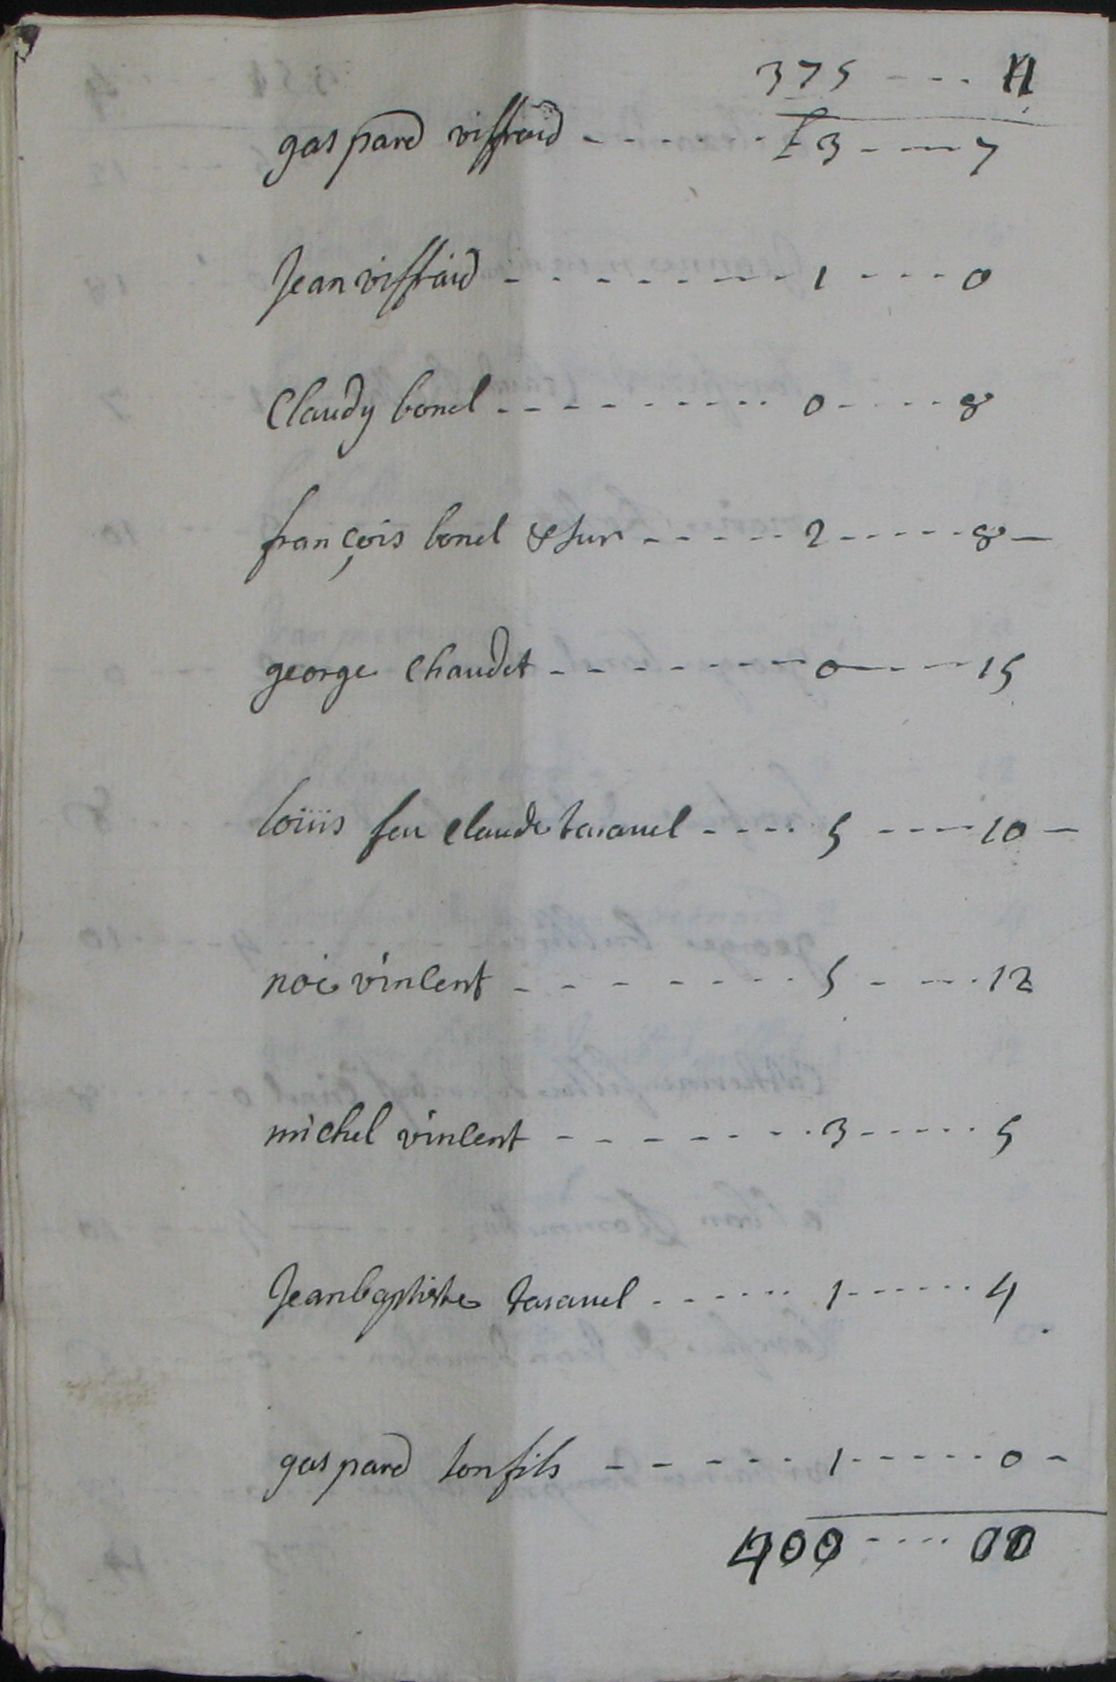 375 ---- 11
gaspard viffraid ------- £ 3 ---- 7
Jean viffraid -------- 1 ---- 0
Claudy bonel ---------- 0 ----- 8
françois bonel & sur ----- 2 ----- 8 -
george chaudet ------- 0 ---- 15
loüis feu claude tavanel ---- 5 ---- 10 -
noé vincent -------- 5 ---- 12
michel vincent -------- 3 ----- 5
Jean baptiste tavanel ------ 1 ------ 4
gaspard son fils ------ 1 ----- 0 -
400 ---- 00